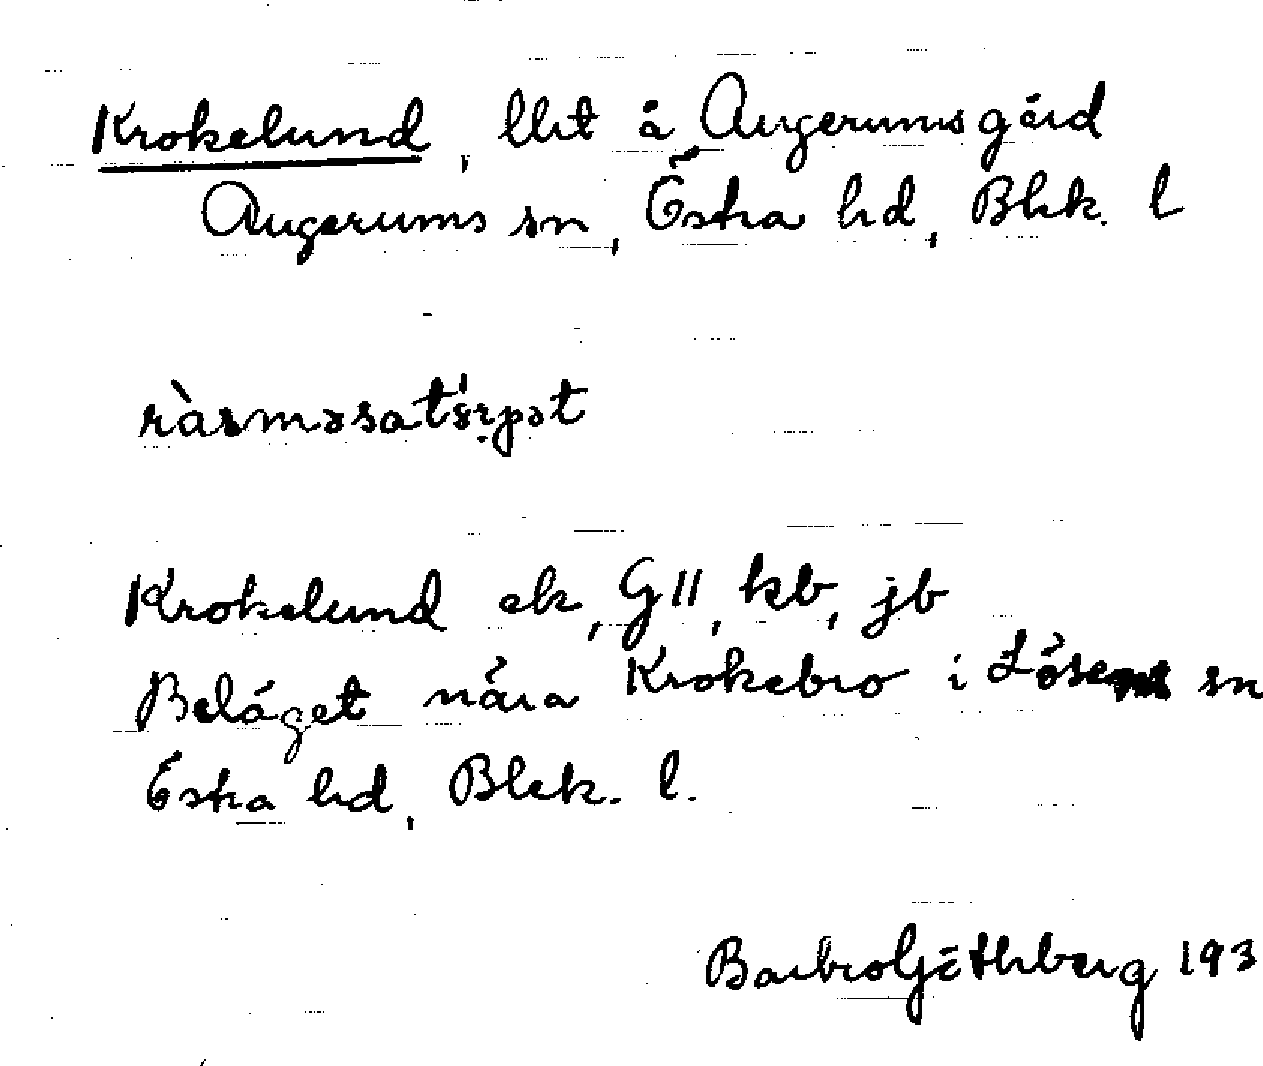 Krokelund, lht å Augerumsgård
Augerums sn, Östra hd, Blek. l
ràsməsatɵ́rpət
Krokelund ek, GII, kb, jb
Beläget nära Krokebro i Lösen sn
Östra hd, Blek. l.
Barbro Göthberg 193